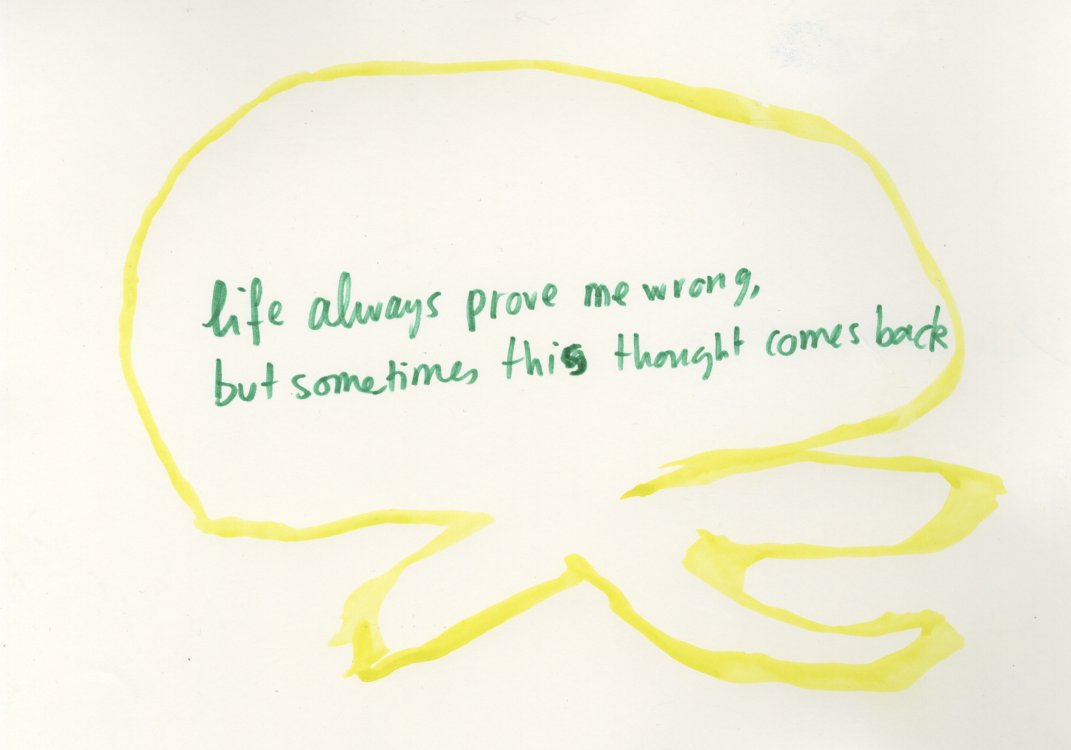 life always prove me wrong,
but sometimes this thought comes back